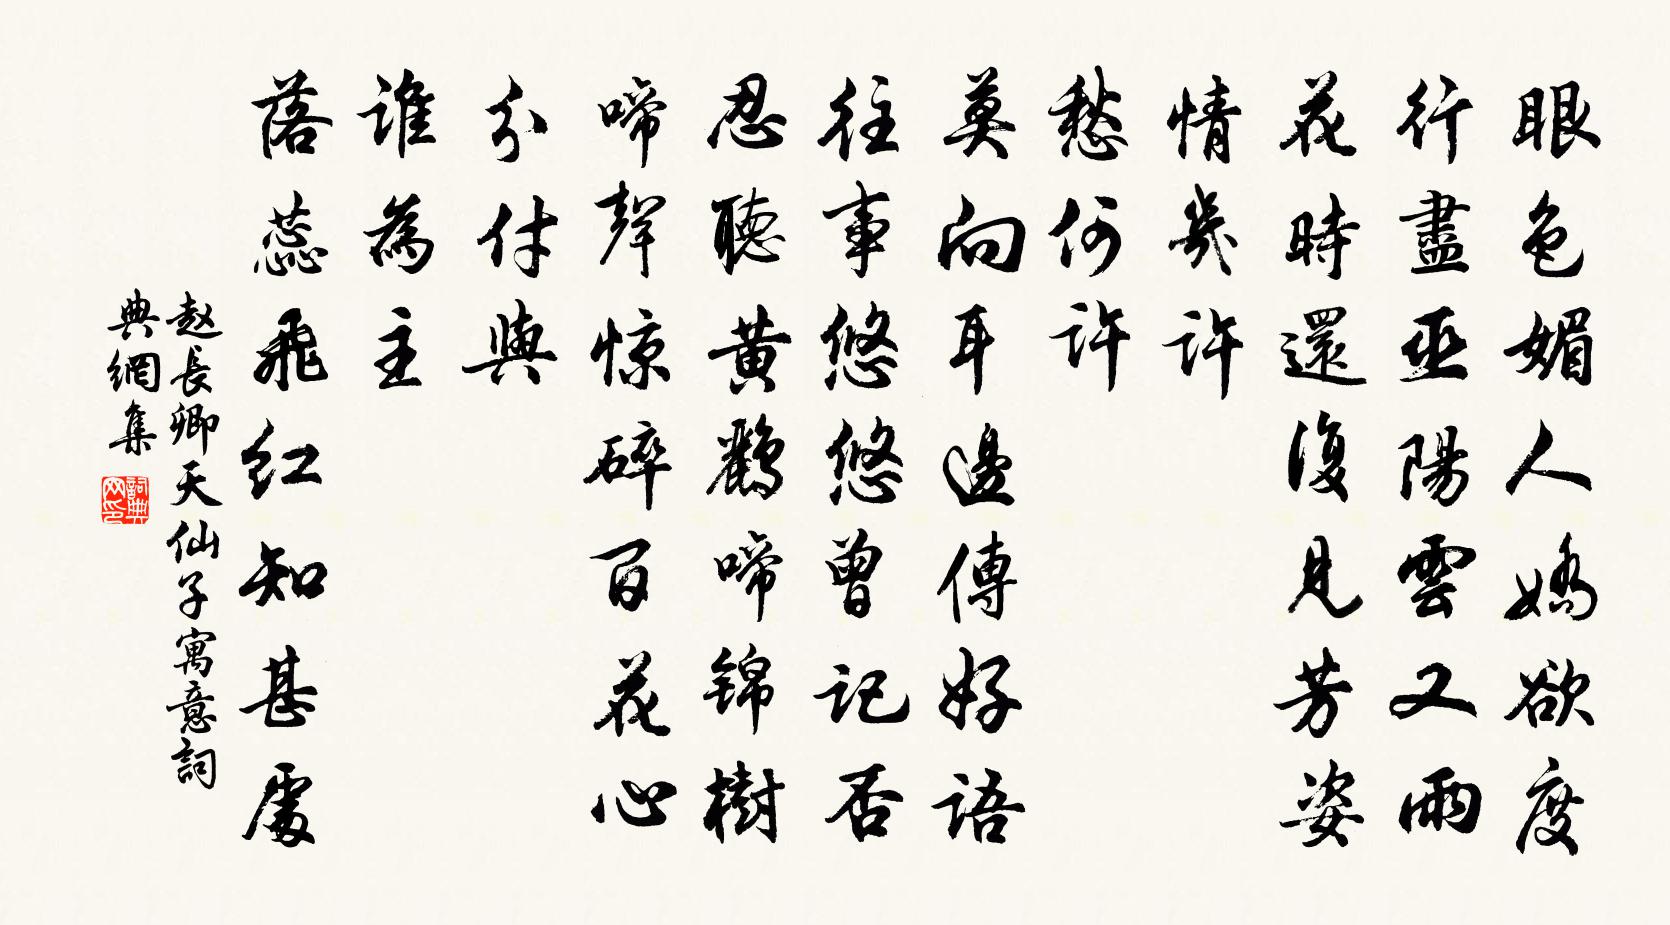 眼色媚人嬌欲度
行盡巫陽雲又雨
花時還復見芳姿
情幾許
愁何許
莫向耳邊傳好語
往事悠悠曾記否
忍聽黃鸝啼錦樹
啼聲惊碎百花心
分付與
誰為主
落蕊飛紅知甚處
赵長卿天仙子寓意詞
典網集
詞典网印